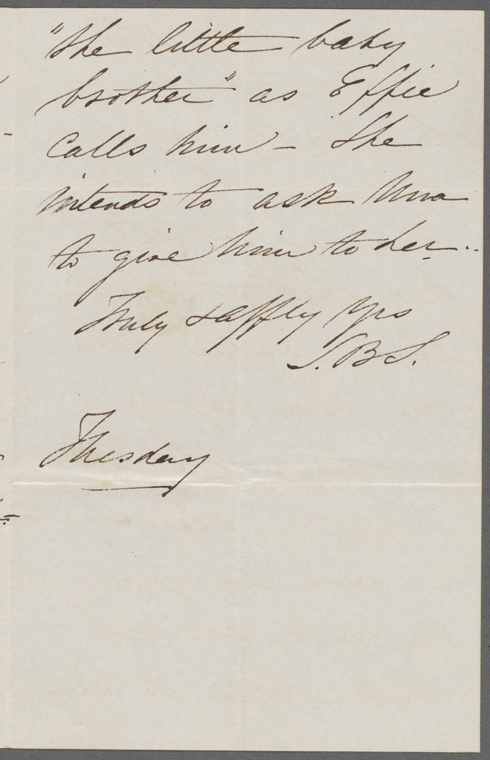 "the little baby
brother" as Effie
calls him - She
intends to ask Una
to give him to her..
Truly & affly yrs
S.B.S.
Tuesday